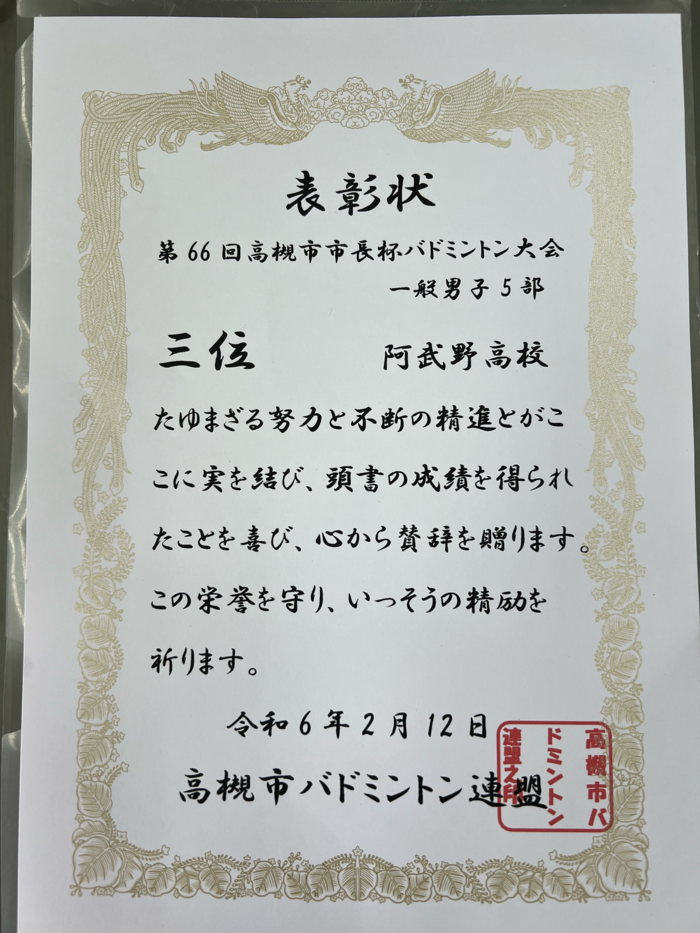 表彰状
第66回高槻市市長杯バドミントン大会
一般男子5部
三位 阿武野高校
たゆまざる努力と不断の精進とがこ
こに実を結び、頭書の成績を得られ
たことを喜び、心から賛辞を贈ります。
この栄誉を守り、いっそうの精励を
祈ります。
令和6年2月12日
高槻市バドミントン連盟
高槻市バ
ドミントン
連盟之印